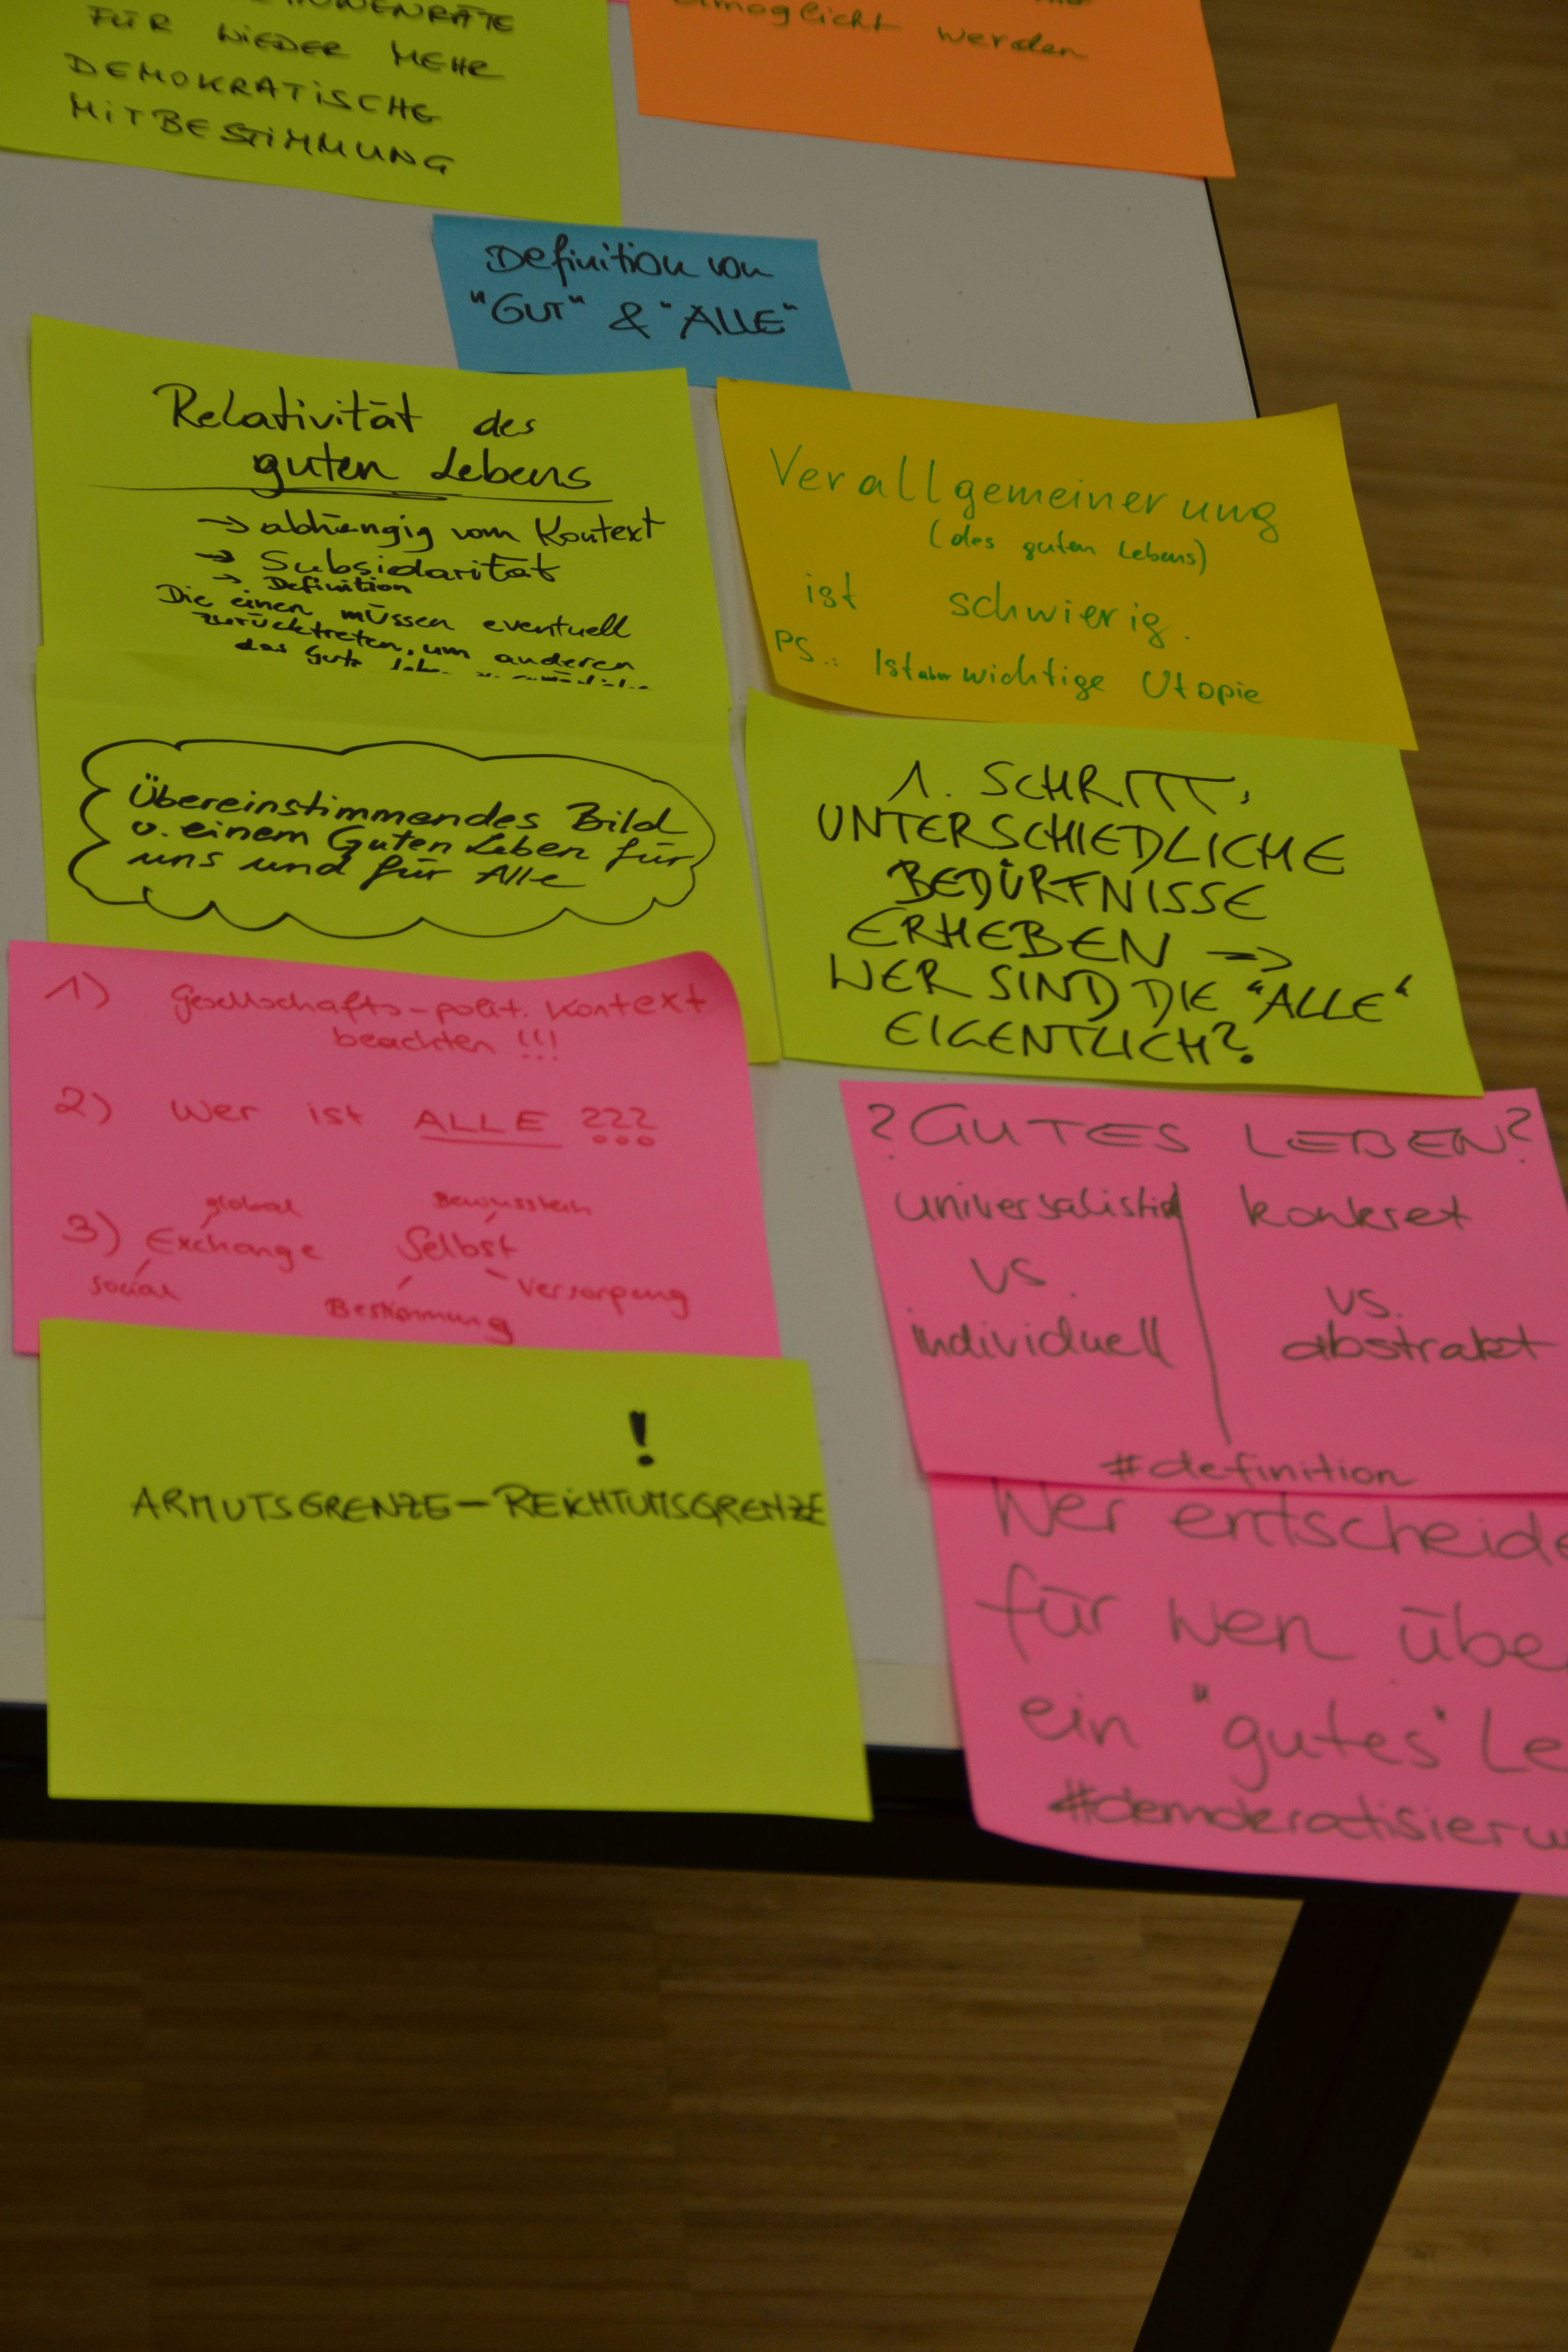 FÜR WIEDER MEHR
DEMOKRATISCHE
MITBESTIMMUNG
werden
Definition von
"GUT" & "ALLE"
Relativität des
guten Lebens
→ abhängig vom Kontext
→ Subsidarität
→ Definition
Die einen müssen eventuell
zurücktreten, um anderen
das gute
Verallgemeinerung
(des guten Lebens)
ist schwierig.
PS.: Ist aber wichtige Utopie
Übereinstimmendes Bild
v. einem Guten Leben für
uns und für Alle
1. SCHRITT:
UNTERSCHIEDLICHE
BEDÜRFNISSE
ERHEBEN →
WER SIND DIE "ALLE"
EIGENTLICH?
1) Gesellschafts-polit. Kontext
beachten !!!
2) Wer ist ALLE ???
3) Exchange
global
social
Selbst
Bewusstsein
Bestimmung
Versorgung
? GUTES LEBEN ?
universalistisch
vs.
individuell
konkret
vs.
abstrakt
#definition
!
ARMUTSGRENZE – REICHTUMSGRENZE
Wer entscheide
für wen übe
ein "gutes" Le
#demokratisieru